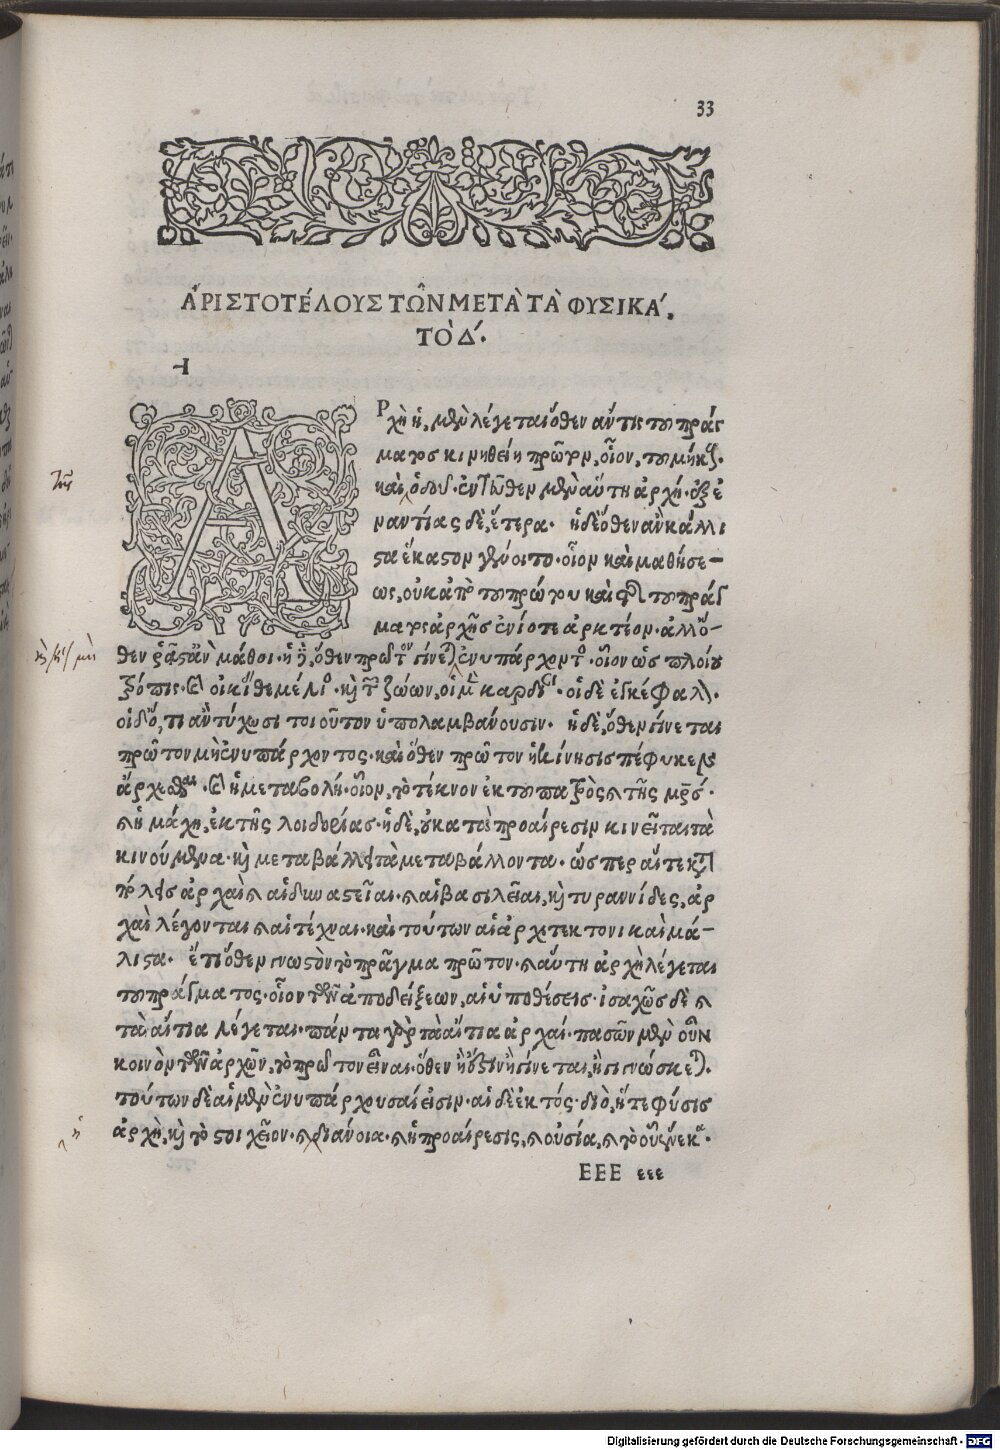 33
ἈΡΙΣΤΟΤΈΛΟΥΣ ΤΩ͂Ν ΜΕΤᾺ ΤᾺ ΦΥΣΙΚΆ.
ΤῸ Δ´.
Α
Ρχὴ ἡ μὲν λέγεται ὅθεν ἄν τις τοῦ πράγ
ματος κινηθείη πρῶτον, οἷον, τοῦ μήκους.
καὶ ὁδοῦ. ἐντεῦθεν μὲν αὕτη ἀρχή. ἐξ ἐ
ναντίας δὲ, ἑτέρα. ἡ δὲ ὅθεν ἂν κάλλι
στα ἕκαστον γένοιτο. οἷον καὶ μαθήσε-
ως, οὐκ ἀπὸ τοῦ πρώτου καὶ τῆς τοῦ πράγ
ματος ἀρχῆς ἐνίοτε ἀρκτέον. ἀλλ' ὅ-
θεν ῥᾷστ' ἂν μάθοι. ἡ δὲ, ὅθεν πρῶτον γίνεται ἐνυπάρχοντος. οἷον ὡς πλοίου
τρόπις. καὶ οἰκίας θεμέλιος. καὶ τῶν ζώων, οἱ μὲν καρδίαν. οἱ δὲ ἐγκέφαλον.
οἱ δὲ, ὅ, τι ἂν τύχωσι τοιοῦτον ὑπολαμβάνουσιν. ἡ δὲ, ὅθεν γίνεται
πρῶτον μὴ ἐνυπάρχοντος. καὶ ὅθεν πρῶτον ἡ κίνησις πέφυκεν
ἄρχεσθαι. καὶ ἡ μεταβολή. οἷον, τὸ τέκνον ἐκ τοῦ πατρὸς καὶ τῆς μητρός.
καὶ ἡ μάχη, ἐκ τῆς λοιδορίας. ἡ δὲ, οὗ κατὰ προαίρεσιν κινεῖται τὰ
κινούμενα. καὶ μεταβάλλει τὰ μεταβάλλοντα. ὥσπερ αἵ τε κατὰ
πόλεις ἀρχαὶ καὶ αἱ δυναστεῖαι. καὶ αἱ βασιλεῖαι, καὶ τυραννίδες, ἀρ
χαὶ λέγονται καὶ αἱ τέχναι. καὶ τούτων αἱ ἀρχιτεκτονικαὶ μά-
λιστα. ἔτι ὅθεν γνωστὸν τὸ πρᾶγμα πρῶτον. καὶ αὕτη ἀρχὴ λέγεται
τοῦ πράγματος. οἷον τῶν ἀποδείξεων, αἱ ὑποθέσεις. ἰσαχῶς δὲ καὶ
τὰ αἴτια λέγεται. πάντα γὰρ τὰ αἴτια ἀρχαί. πασῶν μὲν οὖν
κοινὸν τῶν ἀρχῶν, τὸ πρῶτον εἶναι. ὅθεν ἢ ἔστιν ἢ γίνεται, ἢ γιγνώσκεται.
τούτων δὲ αἱ μὲν ἐνυπάρχουσαί εἰσιν. αἱ δὲ ἐκτός. διὸ, ἥ τε φύσις
ἀρχὴ, καὶ τὸ στοιχεῖον. καὶ διάνοια. καὶ ἡ προαίρεσις, καὶ οὐσία, καὶ τὸ οὗ ἕνεκα.
ΕΕΕ εεε
Digitalisierung gefördert durch die Deutsche Forschungsgemeinschaft - DFG